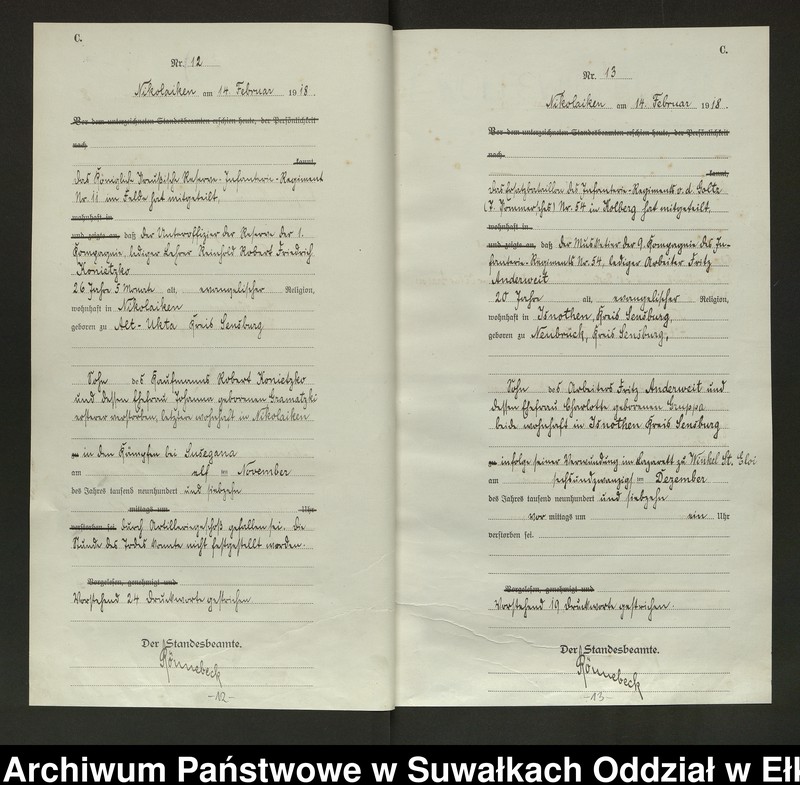 C.
Nr. 12
Nikolaiken am 14. Februar 1918.
Vor dem unterzeichneten Standesbeamten erschien heute, der Persönlichkeit
nach
kannt,
Das Königlich Preußische Reserve-Infanterie-Regiment
Nr. 11 im Felde hat mitgeteilt,
wohnhaft in
und zeigte an, daß der Unteroffizier der Reserve der 1.
Kompagnie, lediger Lehrer Reinhold Robert Friedrich
Konietzko
26 Jahre 5 Monate alt, evangelischer Religion,
wohnhaft in Nikolaiken
geboren zu Alt-Ukta Kreis Sensburg
Sohn des Kaufmanns Robert Konietzko
und dessen Ehefrau Johanna geborenen Gramatzki
ersterer verstorben, letztere wohnhaft in Nikolaiken
in den Kämpfen bei Susegana
am elf ten November
des Jahres tausend neunhundert und siebzehn
mittags um Uhr
verstorben sei durch Artilleriegeschoß gefallen sei. Die
Stunde des Todes konnte nicht festgestellt werden.
Vorgelesen, genehmigt und
Vorstehend 24 Druckworte gestrichen
Der Standesbeamte.
Rönnebeck
-12-
C.
Nr. 13
Nikolaiken am 14. Februar 1918.
Vor dem unterzeichneten Standesbeamten erschien heute, der Persönlichkeit
nach
kannt,
Das Ersatzbataillon des Infanterie-Regiments v. d. Goltz
(7. Pommersches) Nr. 54 in Kolberg hat mitgeteilt,
wohnhaft in
und zeigte an, daß der Musketier der 9. Kompagnie des In-
fanterie-Regiments Nr. 54, lediger Arbeiter Fritz
Anderweit
20 Jahre alt, evangelischer Religion,
wohnhaft in Isnothen, Kreis Sensburg,
geboren zu Neubrück, Kreis Sensburg,
Sohn des Arbeiters Fritz Anderweit und
dessen Ehefrau Charlotte geborenen Gruppa
beide wohnhaft in Isnothen Kreis Sensburg
infolge seiner Verwundung im Lazarett zu Winkel St. Eloi
am sechsundzwanzigs ten Dezember
des Jahres tausend neunhundert und siebzehn
vor mittags um ein Uhr
verstorben sei.
Vorgelesen, genehmigt und
Vorstehend 19 Druckworte gestrichen.
Der Standesbeamte.
Rönnebeck
-13-
Archiwum Państwowe w Suwałkach Oddział w Ełk